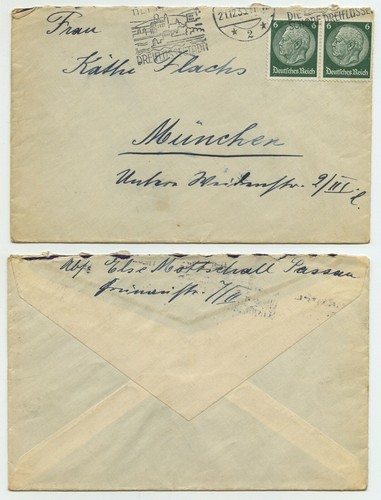 Frau
Käthe Flachs
München
Untere Weidenstr. 2/III l.
DREIFLÜSSESTADT
2
DIE
DREIFLÜSSE
6 6
Deutsches Reich
6 6
Deutsches Reich
Abs: Else Mottschall Passau
7/II